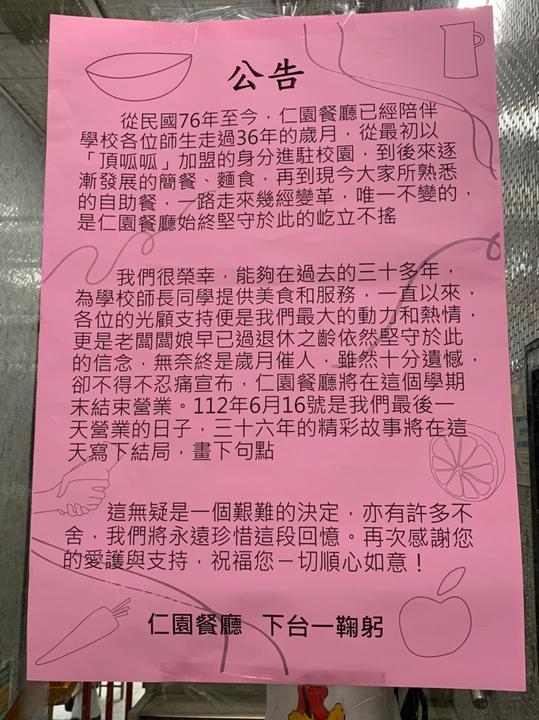 公告
從民國76年至今，仁園餐廳已經陪伴
學校各位師生走過36年的歲月，從最初以
「頂呱呱」加盟的身分進駐校園，到後來逐
漸發展的簡餐、麵食，再到現今大家所熟悉
的自助餐，一路走來幾經變革，唯一不變的，
是仁園餐廳始終堅守於此的屹立不搖
我們很榮幸，能夠在過去的三十多年，
為學校師長同學提供美食和服務，一直以來，
各位的光顧支持便是我們最大的動力和熱情，
更是老闆闆娘早已過退休之齡依然堅守於此
的信念，無奈終是歲月催人，雖然十分遺憾，
卻不得不忍痛宣布，仁園餐廳將在這個學期
末結束營業。112年6月16號是我們最後一
天營業的日子，三十六年的精彩故事將在這
天寫下結局，畫下句點
這無疑是一個艱難的決定，亦有許多不
舍，我們將永遠珍惜這段回憶。再次感謝您
的愛護與支持，祝福您一切順心如意！
仁園餐廳 下台一鞠躬